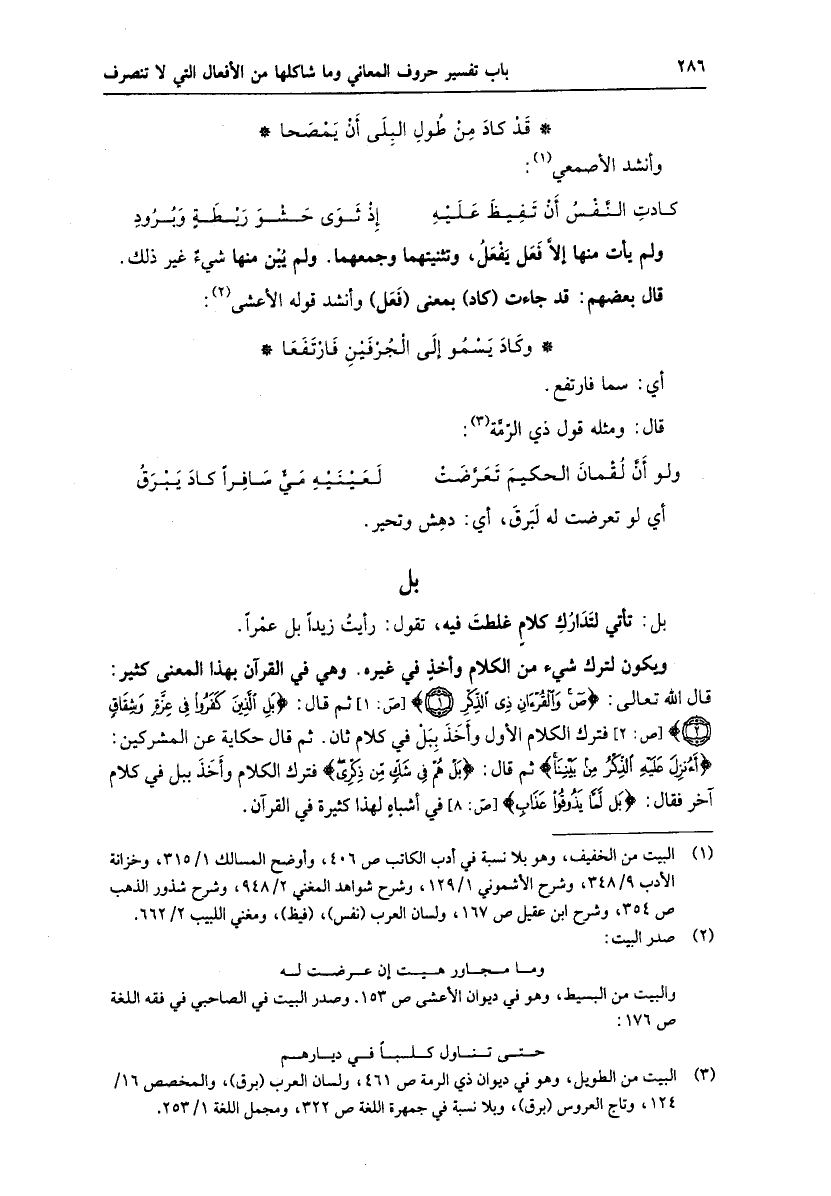 ٢٨٦ باب تفسير حروف المعاني وما شاكلها من الأفعال التي لا تنصرف
* قَدْ كادَ مِنْ طُولِ البِلَى أَنْ يَمْصَحا *
وأنشد الأصمعي(١):
كـادتِ الـنَّفْسُ أَنْ تَـفِـيـظَ عَـلَـيْـهِ إِذْ ثَـوَى حَـشْـوَ رَيْـطَـةٍ وَبُـرُودِ
ولم يأت منها إلاَّ فَعَل يَفْعَلُ، وتثنيتهما وجمعهما. ولم يُبْن منها شيءٌ غير ذلك.
قال بعضهم: قد جاءت (كاد) بمعنى (فَعَل) وأنشد قوله الأعشى(٢):
* وكَادَ يَسْمُو إِلَى الْجُرْفَيْنِ فَارْتَفَعَا *
أي: سما فارتفع.
قال: ومثله قول ذي الرّمَّة(٣):
ولو أَنَّ لُقْمانَ الحكيمَ تَعَرَّضَتْ لَعَيْنَيْهِ مَيٌّ سَافِراً كادَ يَبْرَقُ
أي لو تعرضت له لَبَرِقَ، أي: دهِش وتحير.
بل
بل: تأتي لتَدَارُكِ كلامٍ غلطتَ فيه، تقول: رأيتُ زيداً بل عمْراً.
ويكون لترك شيء من الكلام وأخذٍ في غيره. وهي في القرآن بهذا المعنى كثير:
قال الله تعالى: ﴿صٓ وَٱلْقُرْءَانِ ذِى ٱلذِّكْرِ ١﴾ [صَ: ١] ثم قال: ﴿بَلِ ٱلَّذِينَ كَفَرُوا۟ فِى عِزَّةٍ وَشِقَاقٍ
٢﴾ [ص: ٢] فترك الكلام الأول وأَخَذَ بِبَلْ في كلام ثان. ثم قال حكاية عن المشركين:
﴿أَءُنزِلَ عَلَيْهِ ٱلذِّكْرُ مِنۢ بَيْنِنَا﴾ ثم قال: ﴿بَلْ هُمْ فِى شَكٍّ مِّن ذِكْرِى﴾ فترك الكلام وأَخَذَ ببل في كلام
آخر فقال: ﴿بَل لَّمَّا يَذُوقُوا۟ عَذَابِ﴾ [صَ: ٨] في أشباهٍ لهذا كثيرة في القرآن.
(١) البيت من الخفيف، وهو بلا نسبة في أدب الكاتب ص ٤٠٦، وأوضح المسالك ١/ ٣١٥، وخزانة
الأدب ٩/ ٣٤٨، وشرح الأشموني ١/ ١٢٩، وشرح شواهد المغني ٢/ ٩٤٨، وشرح شذور الذهب
ص ٣٥٤، وشرح ابن عقيل ص ١٦٧، ولسان العرب (نفس)، (فيظ)، ومغني اللبيب ٢/ ٦٦٢.
(٢) صدر البيت:
ومـا مـجـاور هـيـت إن عـرضـت لـه
والبيت من البسيط، وهو في ديوان الأعشى ص ١٥٣. وصدر البيت في الصاحبي في فقه اللغة
ص ١٧٦:
حـتـى تـنـاول كـلـبـاً فـي ديـارهـم
(٣) البيت من الطويل، وهو في ديوان ذي الرمة ص ٤٦١، ولسان العرب (برق)، والمخصص ١٦/
١٢٤، وتاج العروس (برق)، وبلا نسبة في جمهرة اللغة ص ٣٢٢، ومجمل اللغة ١/ ٢٥٣.